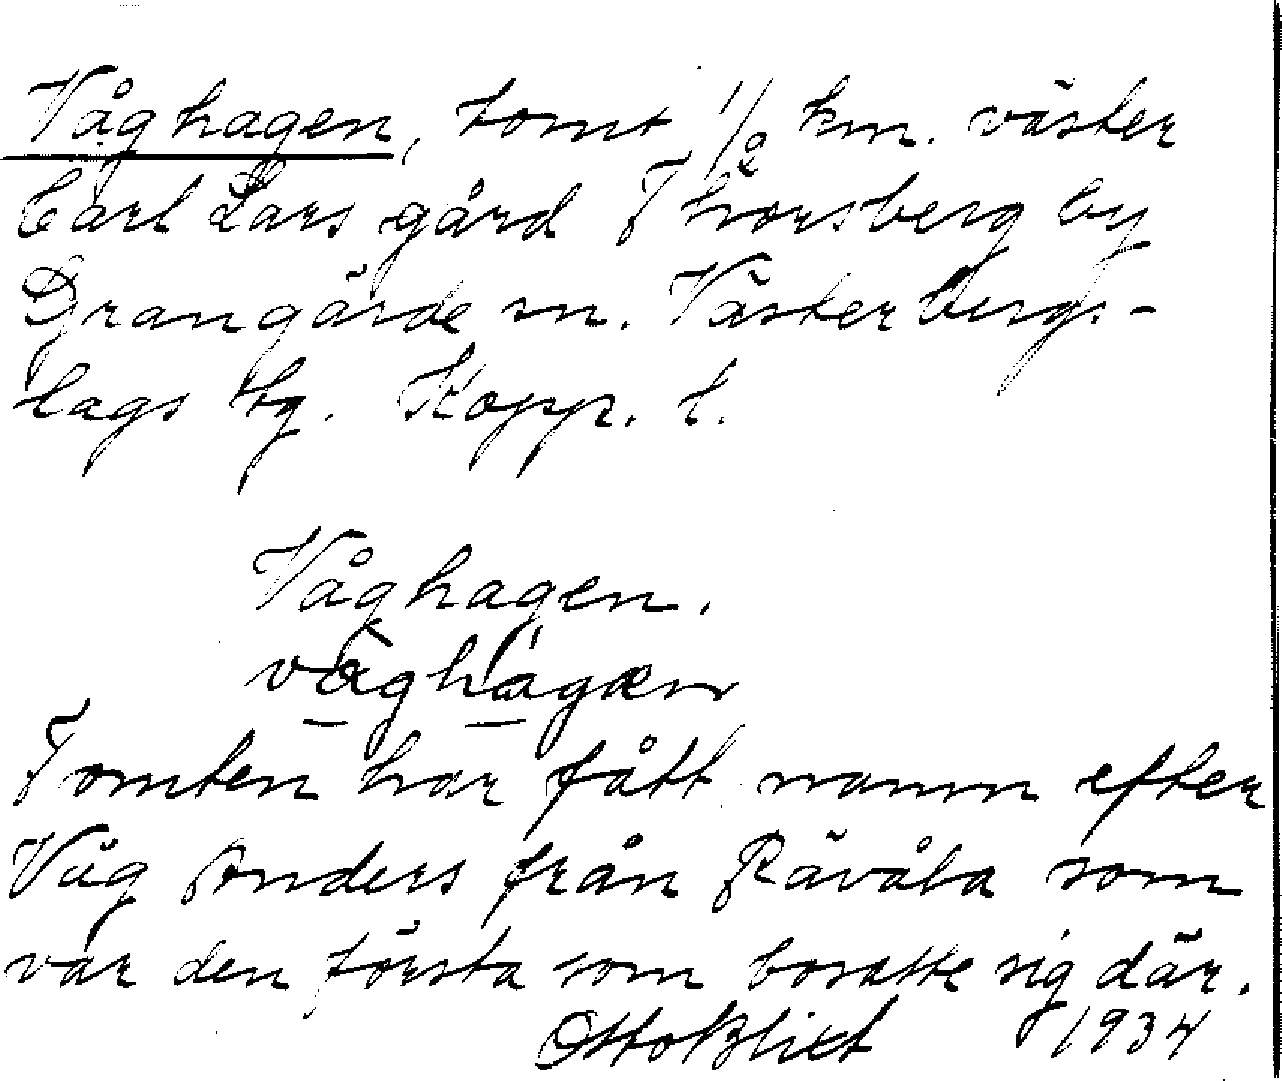 Våghagen, tomt 1/2 km. väster
Carl Lars gård Thorsberg by
Grangärde sn. Västerbergs-
lags tg. Kopp. l.
Våghagen.
vàghágæn
Tomten har fått namn efter
Våg Anders från Räväla som
var den första som bosatte sig där.
Otto Blixt 1934